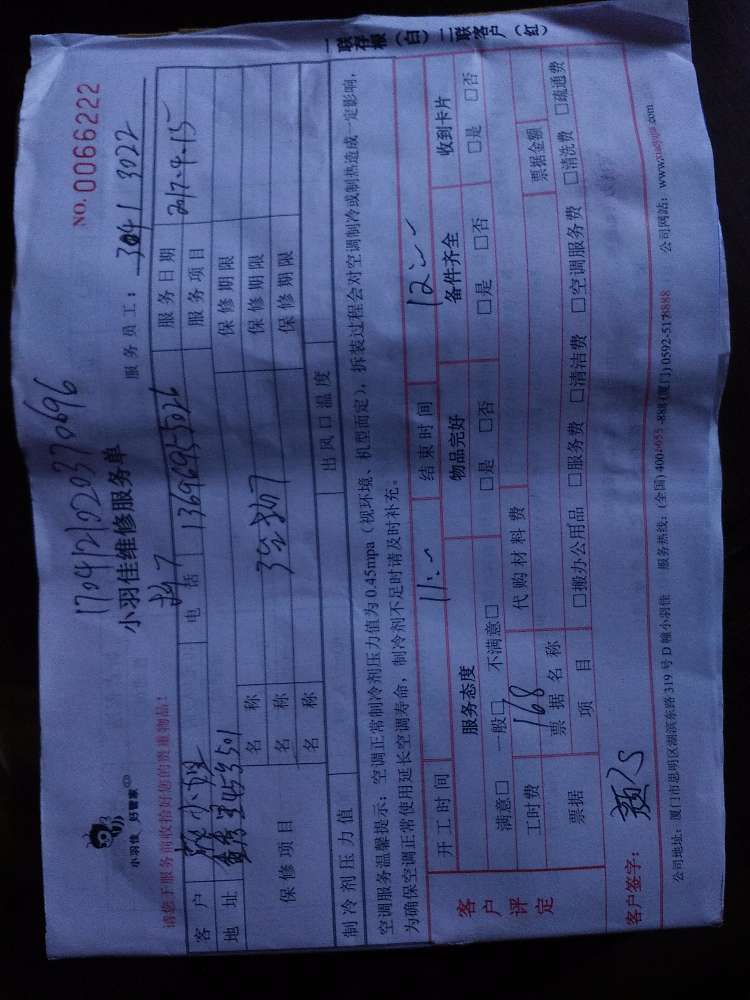 170412102037 0696
NO. 0066222
小羽佳 好管家
小羽佳维修服务单
服务员工： 3041 3022
请您于服务前收拾好您的贵重物品！
客户 电话 13696953026 服务日期 2017.4.15
地址 服务项目
保修项目 名称 保修期限
名称 保修期限
名称 保修期限
制冷剂压力值 出风口温度
空调服务温馨提示：空调正常制冷剂压力值为 0.45mpa（视环境、机型而定），拆装过程会对空调制冷或制热造成一定影响，
为确保空调正常使用延长空调寿命，制冷剂不足时请及时补充。
客户评定 开工时间 11:- 结束时间 12:-
服务态度 物品完好 备件齐全 收到卡片
满意□ 一般□ 不满意□ □是 □否 □是 □否 □是 □否
工时费 168 代购材料费
票据 票据名称 票据金额
项目 □搬办公用品 □服务费 □清洁费 □空调服务费 □清洗费 □疏通费
客户签字：
公司地址：厦门市思明区湖滨东路 319 号 D 幢小羽佳 服务热线：(全国) 4002055-888 (厦门) 0592-5178888 公司网站：www.xiaoyujia.com
一联存根（白） 二联客户（红）